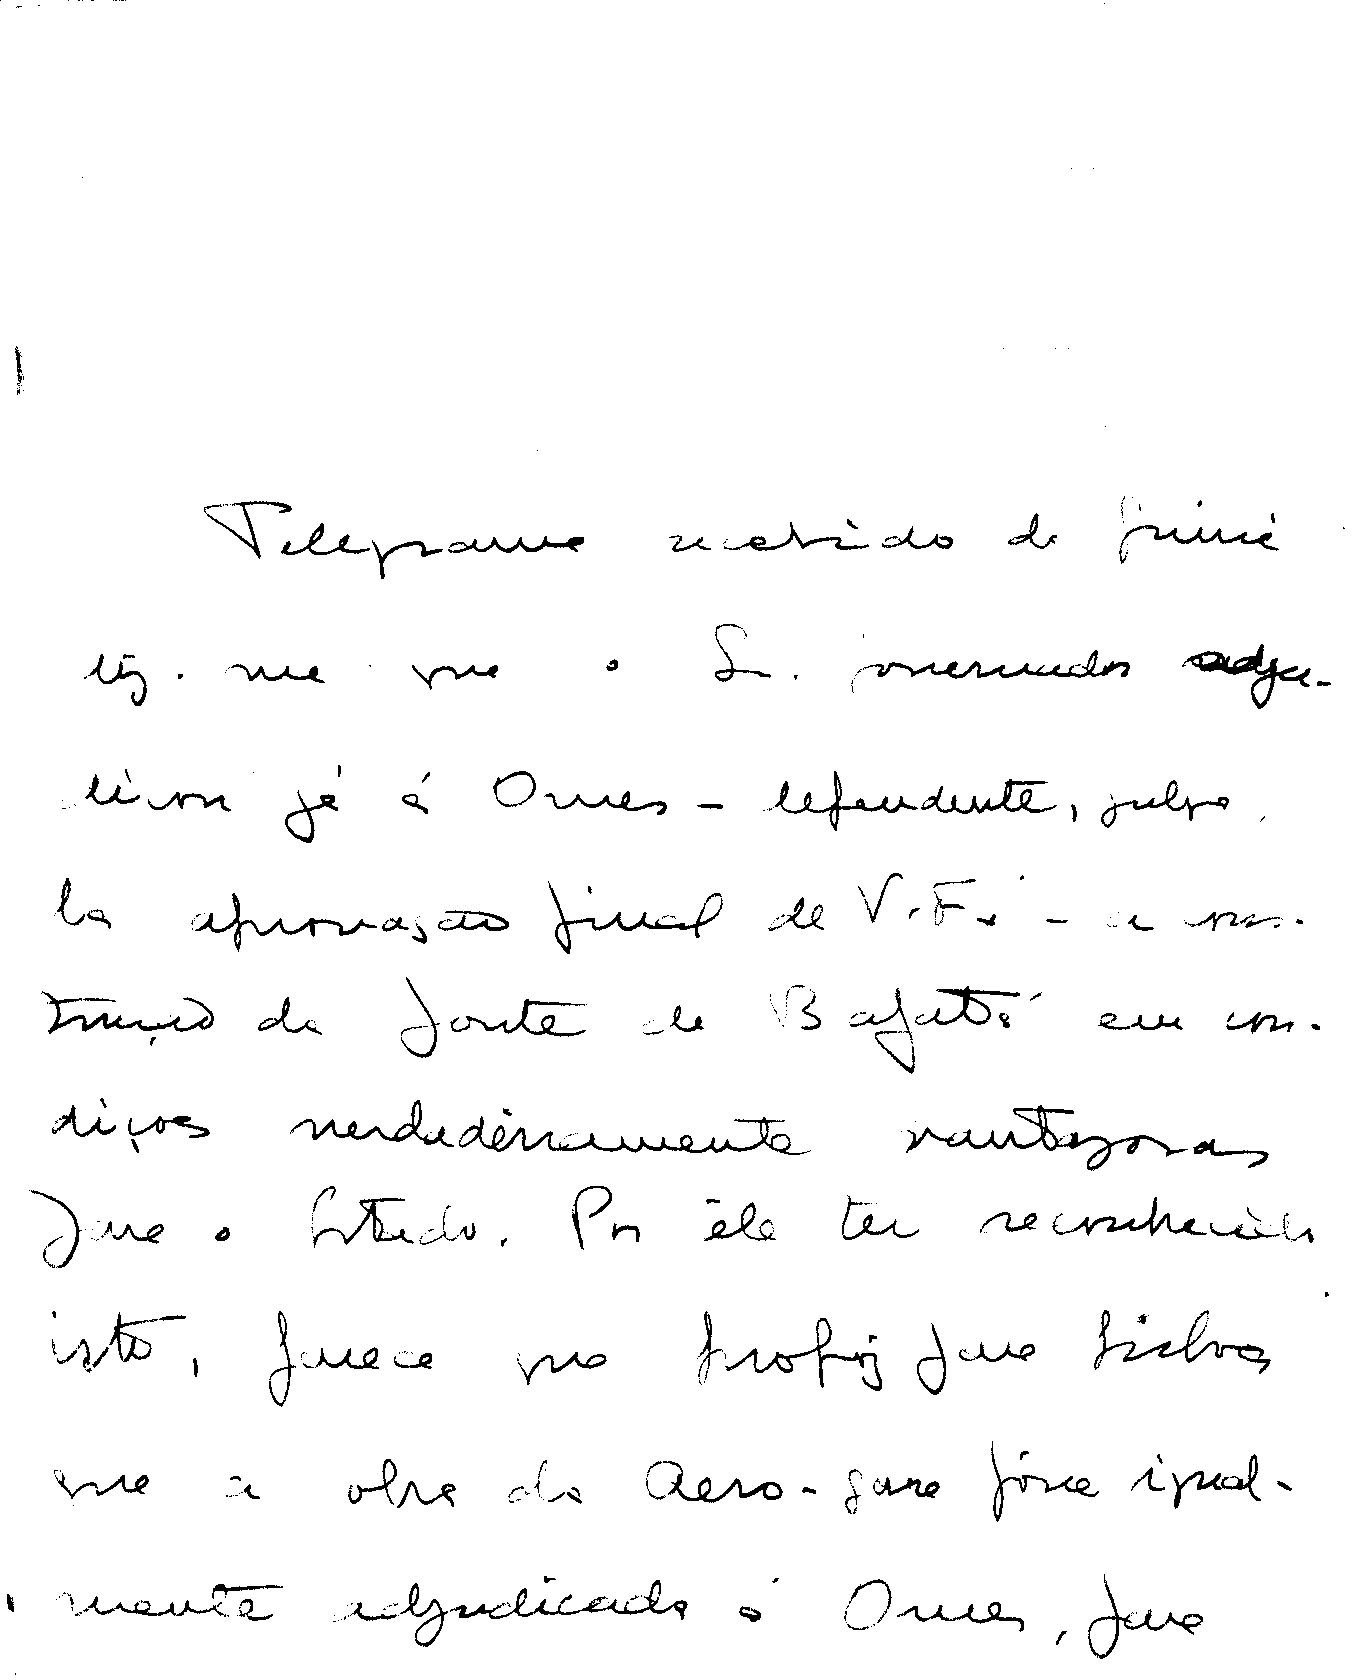 Telegrama recebido da Guiné
diz-me que o Sr. Governador adju-
dicou já à Omes - dependente, julgo,
da aprovação final de V. Ex. - a cons-
trução da fonte de Bafatá em con-
dições verdadeiramente vantajosas
para o Estado. Por êle ter reconhecido
isto, parece que propôs para Lisboa
que a obra da Aero-gare fôsse igual-
mente adjudicada à Omes, para